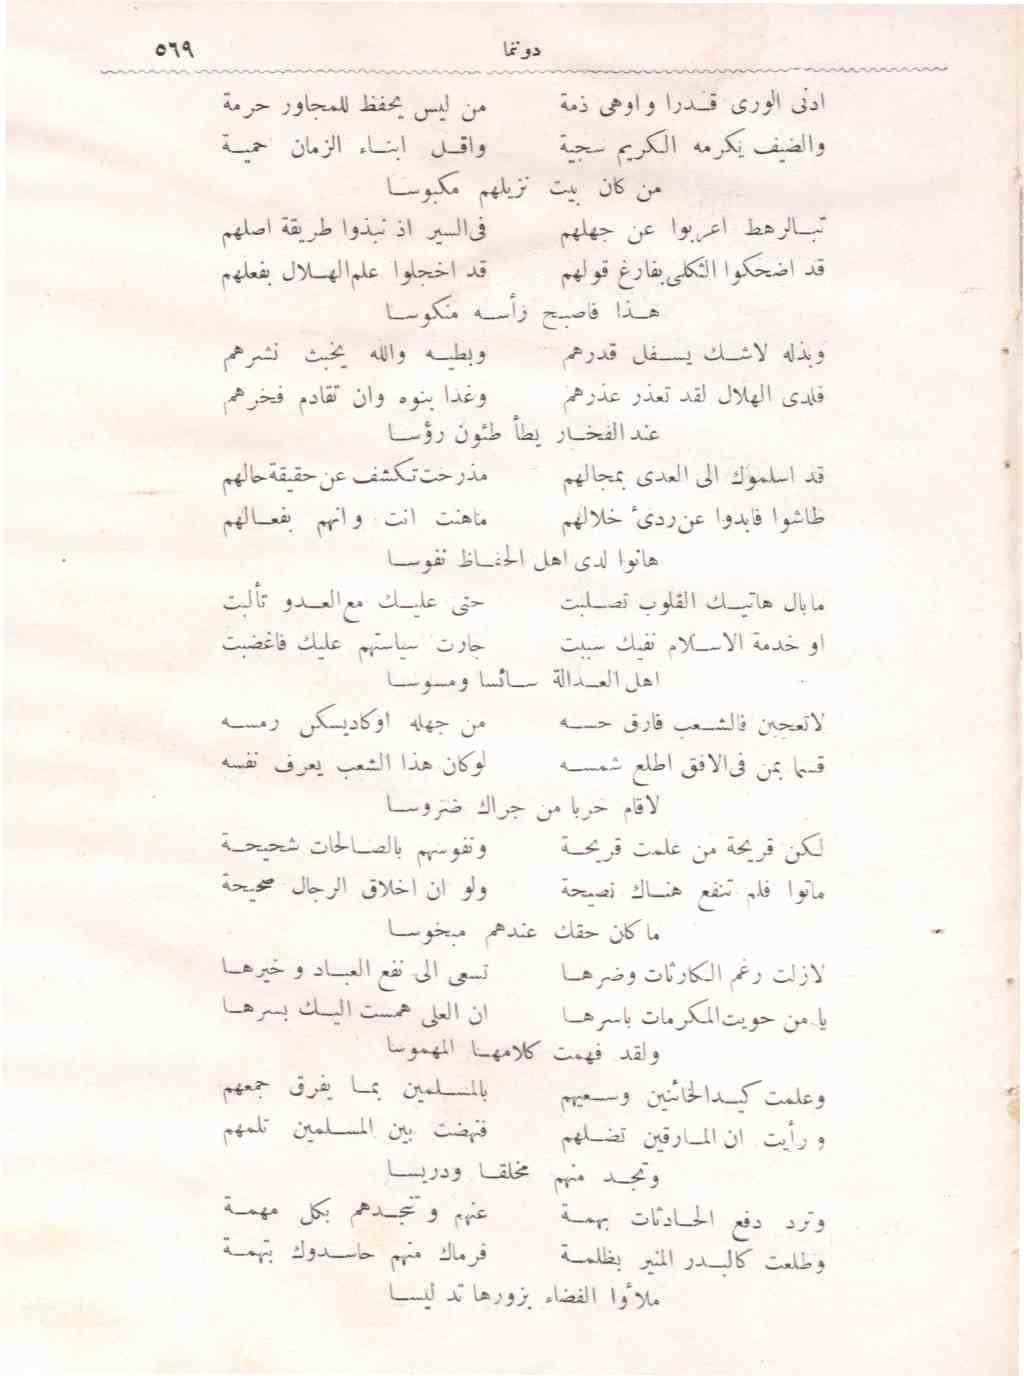 دوننما ٥٦٩
ادنى الورى قدرا واوهى ذمة من ليس يحفظ للمجاور حرمة
والضيف يكرمه الكريم سجية واقل ابناء الزمان حمية
من كان بيت نزيلهم مكبوسا
تبا لرهط اعربوا عن جهلهم فى السير اذ نبذوا طريقة اصلهم
قد اضحكوا الثكلى بفارغ قولهم قد اخجلوا علم الهلال بفعلهم
هذا فاصبح رأسه منكوسا
وبذله لاشك يسفل قدرهم وبطيه والله يخبث نشرهم
فلدى الهلال لقد تعذر عذرهم وغدا بنوه وان تقادم فخرهم
عند الفخار يطأطئون رؤسا
قد اسلموك الى العدى بمجالهم مذرحت تكشف عن حقيقة حالهم
طاشوا فابدوا عن ردئ خلالهم ماهنت انت وانهم بفعالهم
هانوا لدى اهل الحفاظ نفوسا
مابال هاتيك القلوب تصلبت حتى عليك مع العدو تألبت
او خدمة الاسلام نفيك سببت جارت سياستهم عليك فاغضبت
اهل العدالة سائسا ومسوسا
لاتعجبن فالشعب فارق حسه من جهله اوكاديسكن رمسه
قسما بمن فى الافق اطلع شمسه لوكان هذا الشعب يعرف نفسه
لاقام حربا من جراك ضروسا
لكن قريحة من علمت قريحة ونفوسهم بالصالحات شحيحة
ماتوا فلم تنفع هناك نصيحة ولو ان اخلاق الرجال صحيحة
ما كان حقك عندهم مبخوسا
لازلت رغم الكارثات وضرها تسعى الى نفع العباد وخيرها
يا من حويت المكرمات باسرها ان العلى همست اليك بسرها
ولقد فهمت كلامها المهموسا
وعلمت كيد الخائنين وسعيهم بالمسلمين بما يفرق جمعهم
ورأيت ان المارقين تضلهم فنهضت بين المسلمين تلمهم
وتجد منهم مخلقا ودريسا
وترد دفع الحادثات بهمة عنهم وتنجدهم بكل مهمة
وطلعت كالبدر المنير بظلمة فرماك منهم حاسدوك بتهمة
ملاؤا الفضاء بزورها تدليسا